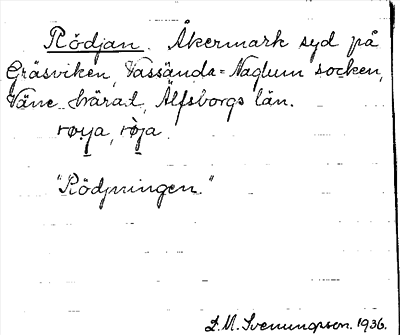 Rödjan. Åkermark syd på
Gräsviken, Vassända=Naglum socken,
Väne härad, Älfsborgs län.
røya, røja.
"Rödjningen."
D.M. Svenungson. 1936.